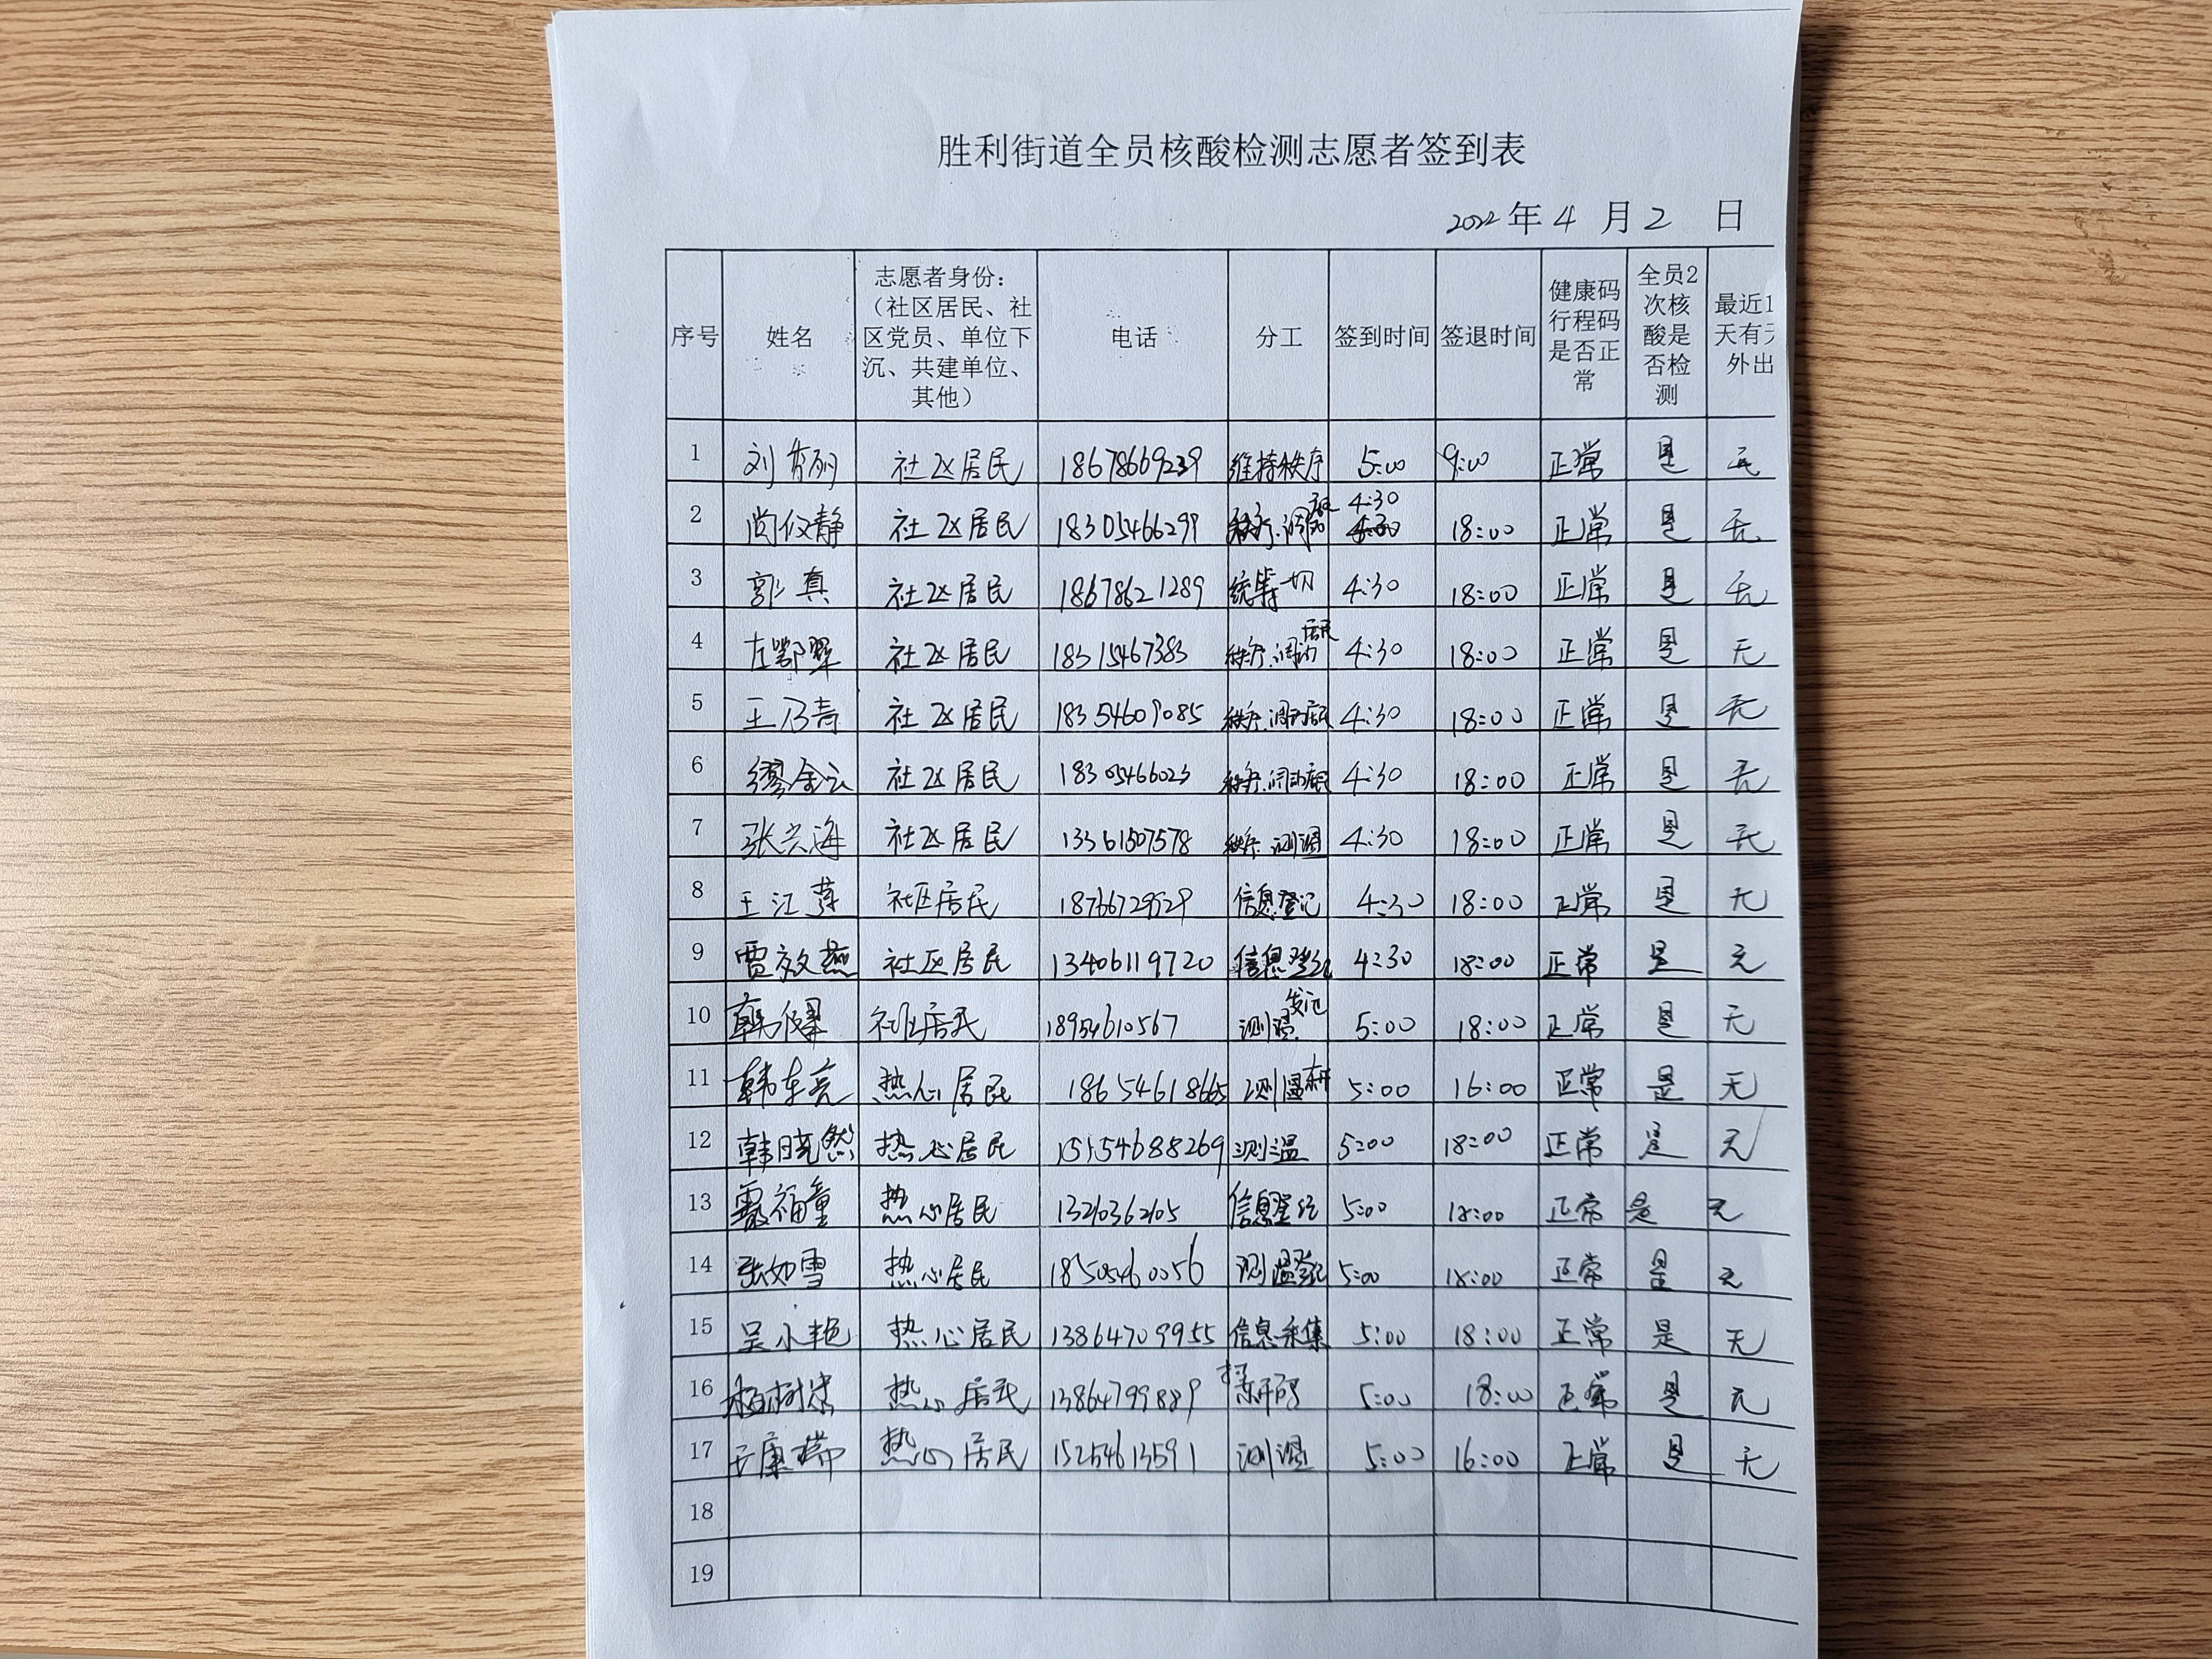 胜利街道全员核酸检测志愿者签到表
2022年4月2日
序号 姓名 志愿者身份：（社区居民、社区党员、单位下沉、共建单位、其他） 电话 分工 签到时间 签退时间 健康码行程码是否正常 全员2次核酸是否检测 最近1 天有 外出
1 刘 社区居民 18678669239 维持秩序 5:00 9:00 正常 是 无
2 尚仪静 社区居民 18305466299 秩序. 4:30 18:00 正常 是 无
3 郭真 社区居民 18678621289 统筹一切 4:30 18:00 正常 是 无
4 左鄂翠 社区居民 18315467383 秩序.调动居民 4:30 18:00 正常 是 无
5 王乃青 社区居民 18354609085 秩序.调动居民 4:30 18:00 正常 是 无
6 缪金云 社区居民 18305466023 秩序.调动居民 4:30 18:00 正常 是 无
7 张兴海 社区居民 13361507578 秩序.测温 4:30 18:00 正常 是 无
8 王江萍 社区居民 18766729529 信息登记 4:30 18:00 正常 是 无
9 贾效燕 社区居民 13406119720 信息登记 4:30 18:00 正常 是 无
10 社区居民 18954610567 测温. 5:00 18:00 正常 是 无
11 韩东亮 热心居民 18654618665 测温 5:00 16:00 正常 是 无
12 韩晓然 热心居民 15554688269 测温 5:00 18:00 正常 是 无
13 福童 热心居民 13210362105 信息登记 5:00 18:00 正常 是 无
14 张如雪 热心居民 18505460056 测温登记 5:00 18:00 正常 是 无
15 吴小艳 热心居民 13864709955 信息采集 5:00 18:00 正常 是 无
16 杨树 热心居民 13864799889 5:00 18:00 正常 是 无
17 康瑞 热心居民 15254613591 测温 5:00 16:00 正常 是 无
18
19